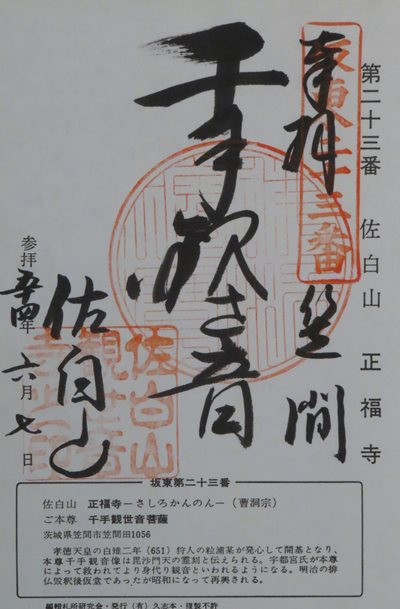 第二十三番 佐白山 正福寺
奉拝
坂東二十三番
笠間
千手
佐白山
佐白山
観世音
参拝 五四年 六月七日
坂東第二十三番
佐白山 正福寺－さしろかんのん－(曹洞宗)
ご本尊 千手観世音菩薩
茨城県笠間市笠間田1056
孝徳天皇の白雄二年(651)狩人の粒浦某が発心して開基となり、
本尊千手観音像は毘沙門天の霊刻と伝えられる。宇都宮氏が本尊
によって救われてより身代り観音といわれるようになる。明治の排
仏毀釈後仮堂であったが昭和になって再興される。
編輯札所研究会・発行(有)久志本・複製不許